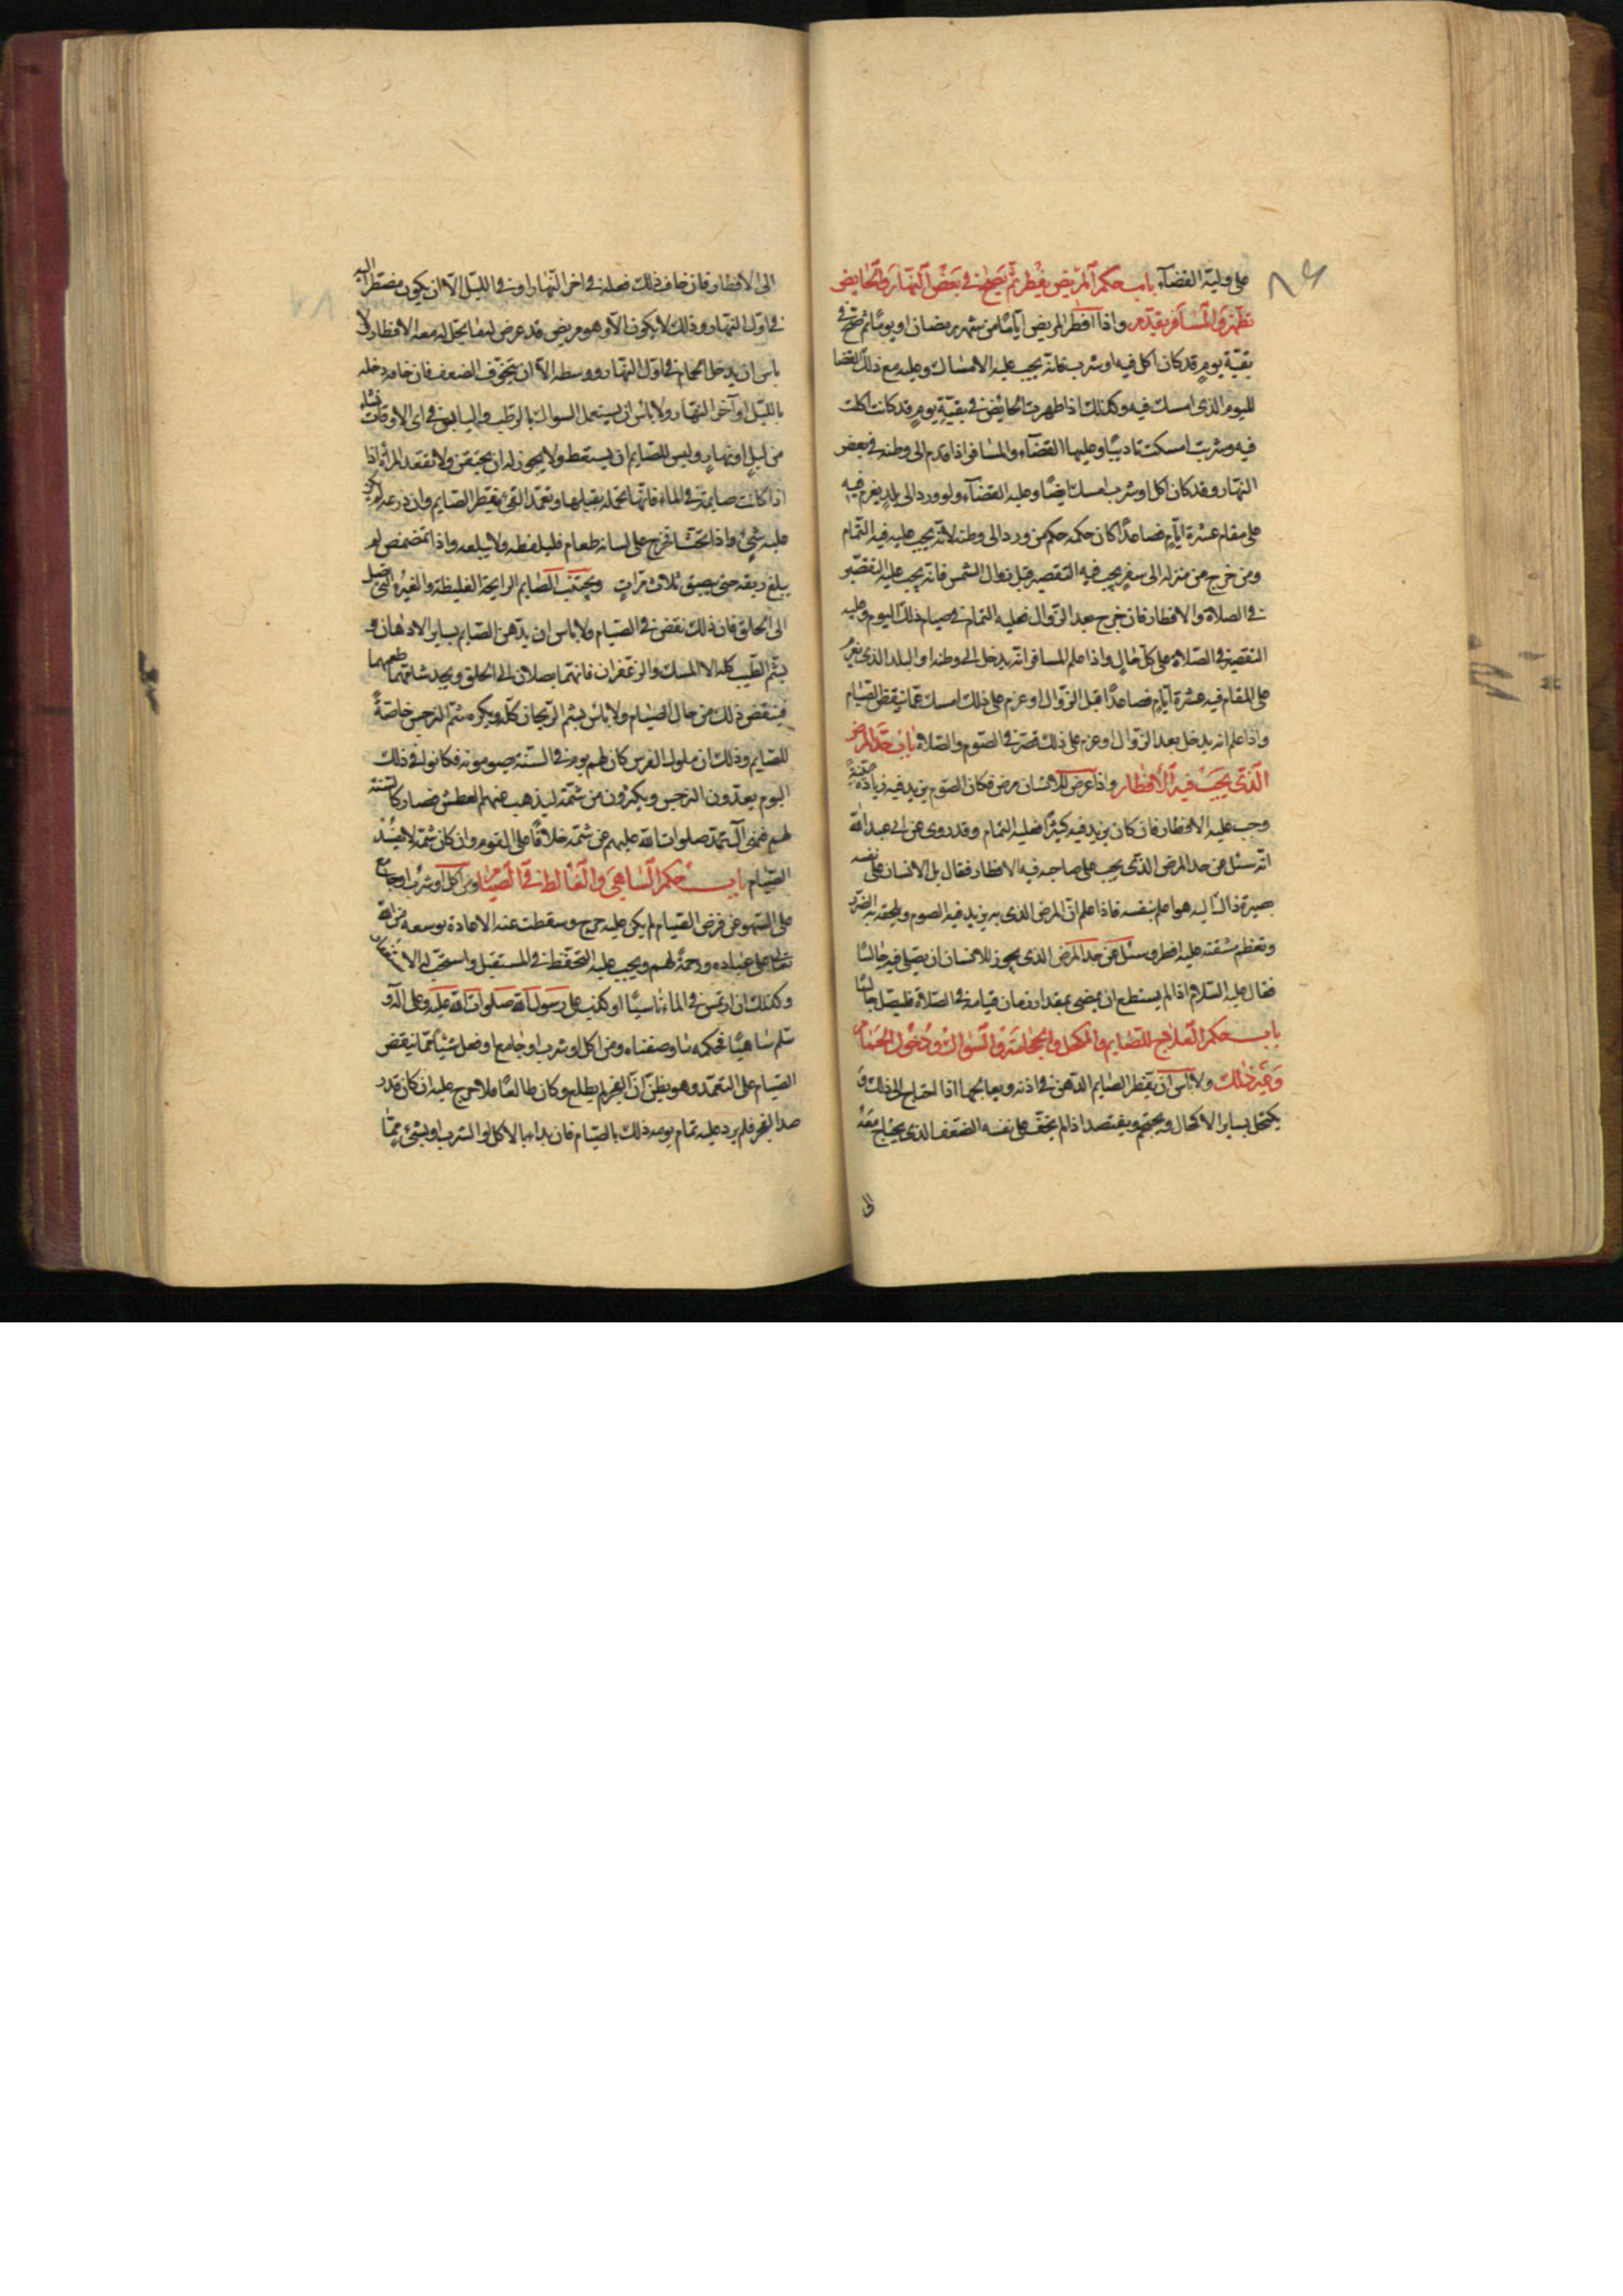 على وليه القضآء باب حكم المريض يفطر ثم يصح في بعض النهار والحايض
تطهر والمسافر يقدم واذا افطر المريض ايامًا من شهر رمضان او يومًا ثم صح في
بقية يومٍ قد كان اكل فيه او شرب فانه يجب عليه الامساك وعليه مع ذلك القضا
لليوم الذى امسك فيه وكذلك اذا طهرت الحايض في بقيةِ يومٍ قد كانت اكلت
فيه وشربت امسكت تاديبًا وعليها القضآء والمسافر اذا قدم الى وطنه في بعض
النهار وقد كان اكل او شرب امسك ايضًا وعليه القضآء ولو ورد الى بلدٍ يعزم فيه
على مقام عشرة ايامٍ فصاعدًا كان حكمه حكم من ورد الى وطنه لانه يجب عليه فيه التمام
ومن خرج من منزله الى سفرٍ يجب فيه التقصير قبل زوال الشمس فانه يجب عليه التقصير
في الصلاة والافطار فان خرج بعد الزوال فعليه التمام في صيام ذلك اليوم وعليه
التقصير في الصلاة على كل حالٍ واذا علم المسافر انه يدخل الى وطنه او البلد الذى يعزم
على المقام فيه عشرة ايامٍ فصاعدًا قبل الزوال او عزم على ذلك امسك عما ينقض الصيام
واذا علم انه يدخل بعد الزوال او عزم على ذلك قصر في الصوم والصلاة باب حد المرض
الذى يجب فيه الافطار واذا عرض للانسان مرض فكان الصوم يزيد فيه زيادة بيّنة
وجب عليه الافطار فان كان يزيد فيه يسيرًا فعليه التمام وقد روى عن ابى عبد الله
انه سئل عن حد المرض الذى يجب على صاحبه فيه الافطار فقال بل الانسان على نفسه
بصيرة ذاك اليه هو اعلم بنفسه فاذا علم ان المرض الذى به يزيد فيه الصوم ويلحقه به الضرر
وتعظم مشقته عليه افطر وسئل عن حد المرض الذى يجوز للانسان ان يصلى فيه جالسًا
فقال عليه السلام اذا لم يستطع ان يمضى بمقدار زمان قيامه في الصلاة فليصل جالسًا
باب حكم العلاج للصايم والكحل والحجامة والسواك ودخول الحمام
وغير ذلك ولا باس ان يقطر الصايم الدهن في اذنه ويعالجها اذا احتاج الى ذلك و
يكتحل بساير الاكحال ويحتجم ويفتصد اذا لم يخف على نفسه الضعف الذى يحتاج معه
الى
الى الافطار فان خاف ذلك فعله في اخر النهار او في الليل الا ان يكون مضطرًا اليه
في اول النهار وذلك لا يكون الا وهو مريض قد عرض له ما يحل له معه الافطار ولا
باس ان يدخل الحمام في اول النهار ووسطه الا ان يتخوف الضعف فان خافه دخله
بالليل او آخر النهار ولا باس ان يستعمل السواك بالرطب واليابس في اى الاوقات شاء
من ليلٍ او نهارٍ وليس للصايم ان يستعط ولا يجوز له ان يحتقن ولا تقعد المرأة اذا
اذا كانت صايمة في الماء فانها تحمله بقبلها وتعمد القئ يفطر الصايم وان ذرعه لم يكن
عليه شئ واذا تجشا فخرج على لسانه طعام فليلفظه ولا يبلعه واذا تمضمض لم
يبلع ريقه حتى يبصق ثلاث مراتٍ ويجتنب الصايم الرايحة الغليظة والغبرة التى تصل
الى الحلق فان ذلك نقض في الصيام ولا باس ان يدهن الصايم بساير الادهان و
يشم الطيب كله الا المسك والزعفران فانهما يصلان الى الحلق ويجد شامهما طعمهما
فينقض ذلك من حال الصيام ولا باس بشم الريحان كله ويكره شم النرجس خاصةً
للصايم وذلك ان ملوك الفرس كان لهم يوم في السنة يصومونه فكانوا في ذلك
اليوم يعدون النرجس ويكثرون من شمه ليذهب عنهم العطش فصار كالسنة
لهم فنهى آل محمد صلوات الله عليهم عن شمه خلافًا على القوم وان كان شمه لا يفسد
الصيام باب حكم الساهى والغالط في الصيام ومن اكل او شرب او جامع
على السهو عن فرض الصيام لم يكن عليه حرج وسقطت عنه الاعادة توسعة من الله
تعالى على عباده ورحمةً لهم ويجب عليه التحفظ في المستقبل واستحب له الاستغفار
وكذلك ان ارتمس في الماء ناسيًا او كذب على رسول الله صلوات الله عليه وعلى آله و
سلم ساهيًا فحكمه ما وصفناه ومن اكل او شرب او جامع او فعل شيئًا مما ينقض
الصيام على التعمد وهو يظن ان الفجر لم يطلع وكان طالعًا فلا حرج عليه ان كان قد ر
صد الفجر فلم يره وعليه تمام يومه ذلك بالصيام فان بداء بالاكل او الشرب او بشئٍ مما